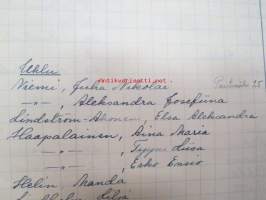 Uklu
Niemi, Juha Nikolai
—"—, Aleksandra Josefiina
Lindström-Ahonen, Elsa Aleksandra
Haapalainen, Aina Maria
—"—, Tyyne Liisa
—"—, Esko Ensio
Helin Manda
antikvariaatti.net